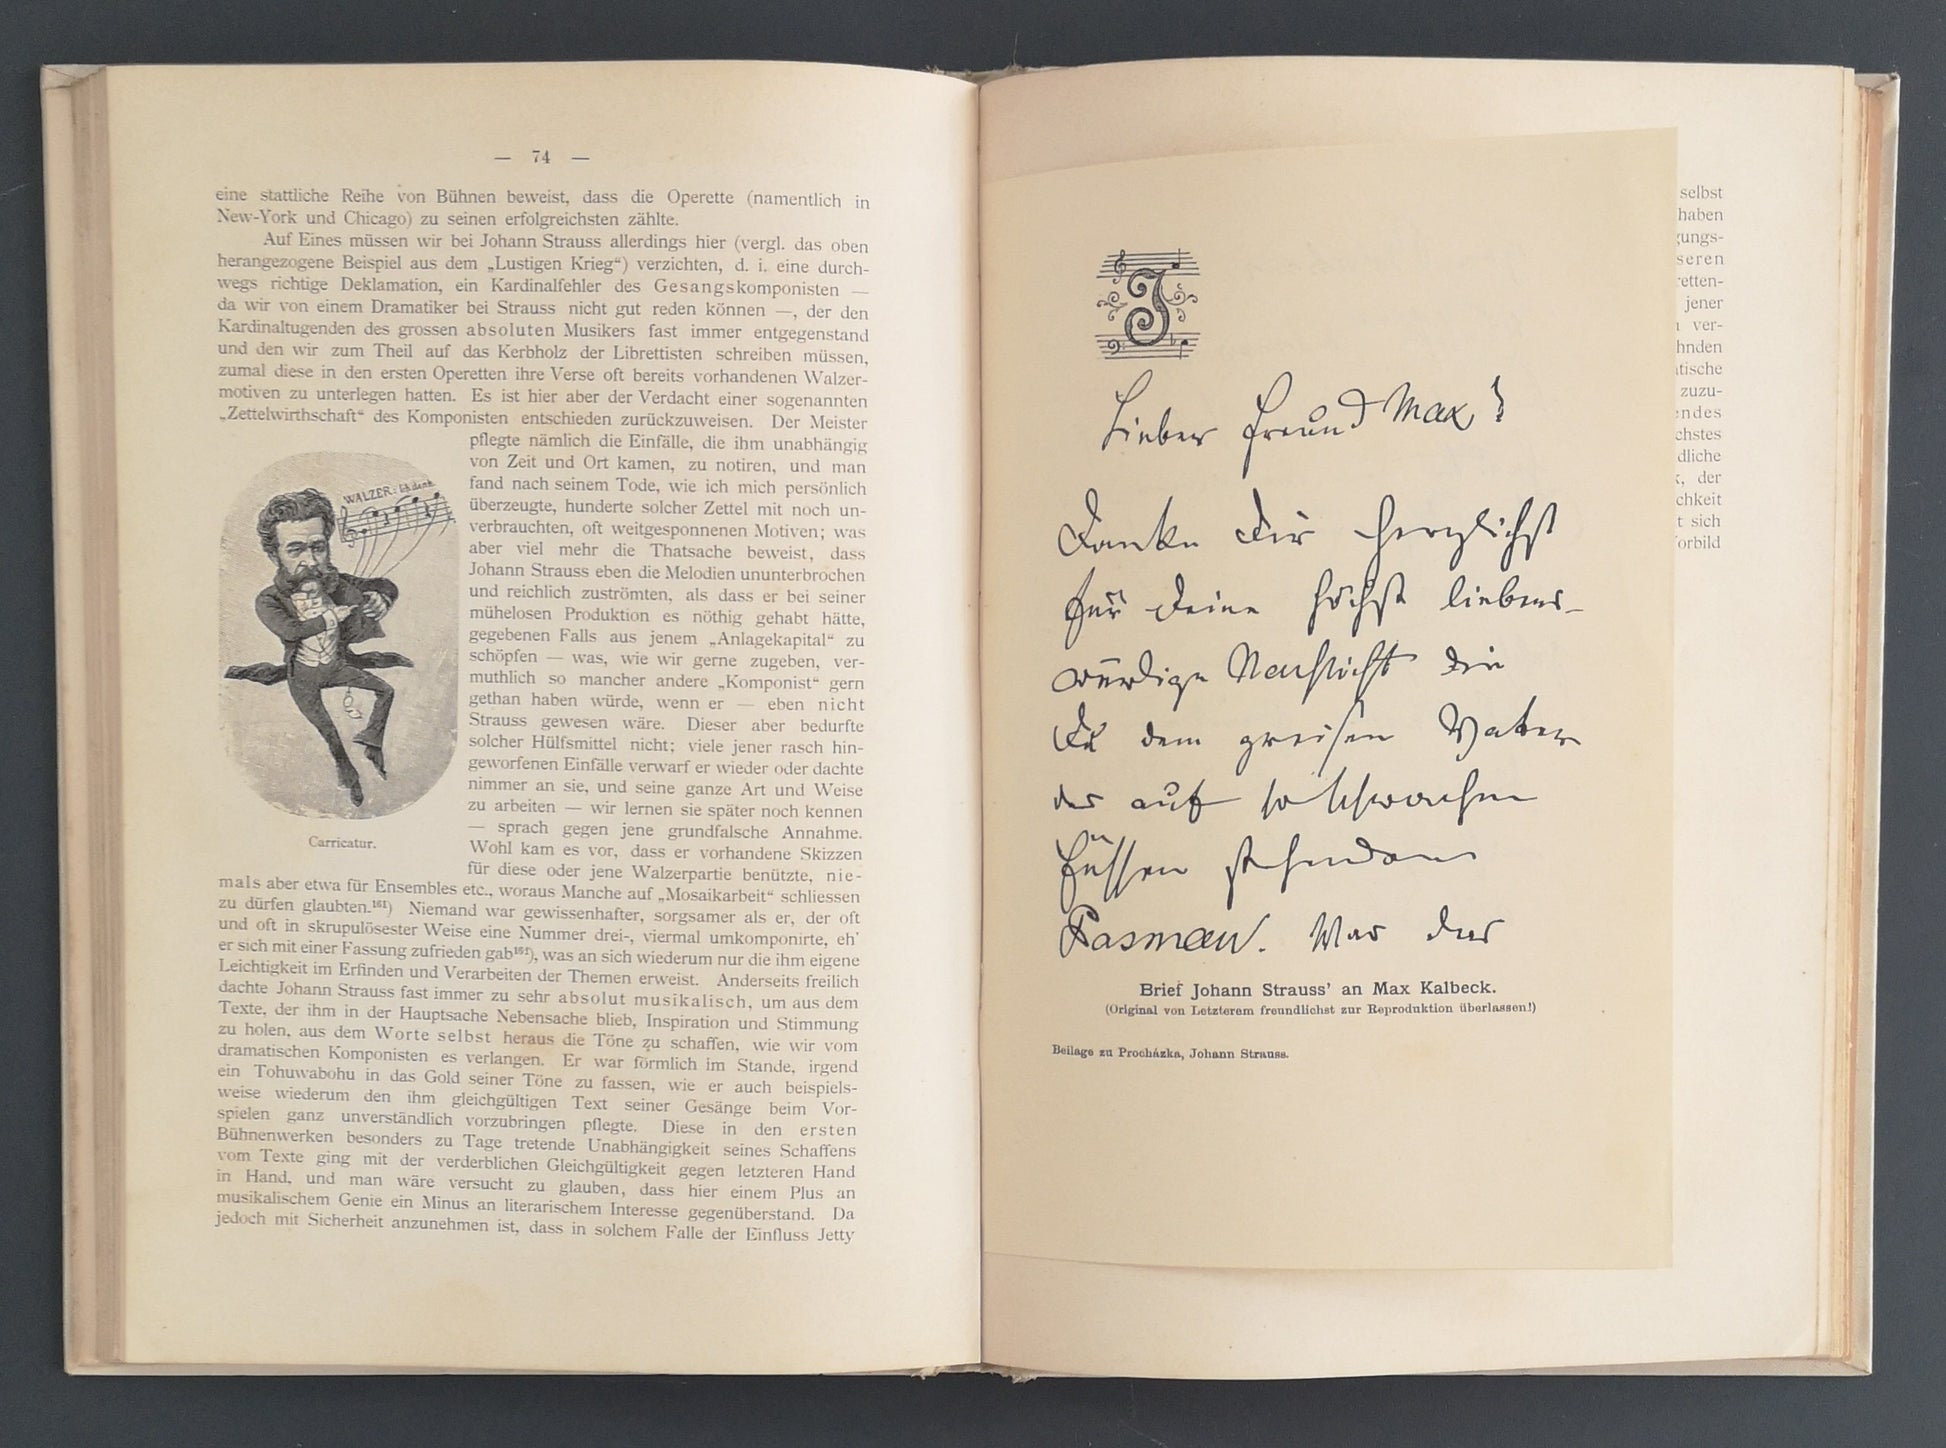 — 74 —
eine stattliche Reihe von Bühnen beweist, dass die Operette (namentlich in
New-York und Chicago) zu seinen erfolgreichsten zählte.
Auf Eines müssen wir bei Johann Strauss allerdings hier (vergl. das oben
herangezogene Beispiel aus dem „Lustigen Krieg“) verzichten, d. i. eine durch-
wegs richtige Deklamation, ein Kardinalfehler des Gesangskomponisten —
da wir von einem Dramatiker bei Strauss nicht gut reden können —, der den
Kardinaltugenden des grossen absoluten Musikers fast immer entgegenstand
und den wir zum Theil auf das Kerbholz der Librettisten schreiben müssen,
zumal diese in den ersten Operetten ihre Verse oft bereits vorhandenen Walzer-
motiven zu unterlegen hatten. Es ist hier aber der Verdacht einer sogenannten
„Zettelwirthschaft“ des Komponisten entschieden zurückzuweisen. Der Meister
pflegte nämlich die Einfälle, die ihm unabhängig
von Zeit und Ort kamen, zu notiren, und man
fand nach seinem Tode, wie ich mich persönlich
überzeugte, hunderte solcher Zettel mit noch un-
verbrauchten, oft weitgesponnenen Motiven; was
aber viel mehr die Thatsache beweist, dass
Johann Strauss eben die Melodien ununterbrochen
und reichlich zuströmten, als dass er bei seiner
mühelosen Produktion es nöthig gehabt hätte,
gegebenen Falls aus jenem „Anlagekapital“ zu
schöpfen — was, wie wir gerne zugeben, ver-
muthlich so mancher andere „Komponist“ gern
gethan haben würde, wenn er — eben nicht
Strauss gewesen wäre. Dieser aber bedurfte
solcher Hülfsmittel nicht; viele jener rasch hin-
geworfenen Einfälle verwarf er wieder oder dachte
nimmer an sie, und seine ganze Art und Weise
zu arbeiten — wir lernen sie später noch kennen
— sprach gegen jene grundfalsche Annahme.
Wohl kam es vor, dass er vorhandene Skizzen
für diese oder jene Walzerpartie benützte, nie-
WALZER:
Carricatur.
mals aber etwa für Ensembles etc., woraus Manche auf „Mosaikarbeit“ schliessen
zu dürfen glaubten.¹⁶¹) Niemand war gewissenhafter, sorgsamer als er, der oft
und oft in skrupulösester Weise eine Nummer drei-, viermal umkomponirte, eh'
er sich mit einer Fassung zufrieden gab), was an sich wiederum nur die ihm eigene
Leichtigkeit im Erfinden und Verarbeiten der Themen erweist. Anderseits freilich
dachte Johann Strauss fast immer zu sehr absolut musikalisch, um aus dem
Texte, der ihm in der Hauptsache Nebensache blieb, Inspiration und Stimmung
zu holen, aus dem Worte selbst heraus die Töne zu schaffen, wie wir vom
dramatischen Komponisten es verlangen. Er war förmlich im Stande, irgend
ein Tohuwabohu in das Gold seiner Töne zu fassen, wie er auch beispiels-
weise wiederum den ihm gleichgültigen Text seiner Gesänge beim Vor-
spielen ganz unverständlich vorzubringen pflegte. Diese in den ersten
Bühnenwerken besonders zu Tage tretende Unabhängigkeit seines Schaffens
vom Texte ging mit der verderblichen Gleichgültigkeit gegen letzteren Hand
in Hand, und man wäre versucht zu glauben, dass hier einem Plus an
musikalischem Genie ein Minus an literarischem Interesse gegenüberstand. Da
jedoch mit Sicherheit anzunehmen ist, dass in solchem Falle der Einfluss Jetty
J
Lieber Freund Max!
Danke Dir herzlichst
für Deine höchst liebens-
würdige Nachsicht die
Du dem greisen Vater
des auf so schwachen
Füssen stehenden
Pasman. War das
Brief Johann Strauss' an Max Kalbeck.
(Original von Letzterem freundlichst zur Reproduktion überlassen!)
Beilage zu Procházka, Johann Strauss.
selbst
haben
gungs-
seren
retten-
jener
ver-
hnden
tische
zuzu-
endes
chstes
dliche
der
chkeit
t sich
orbild